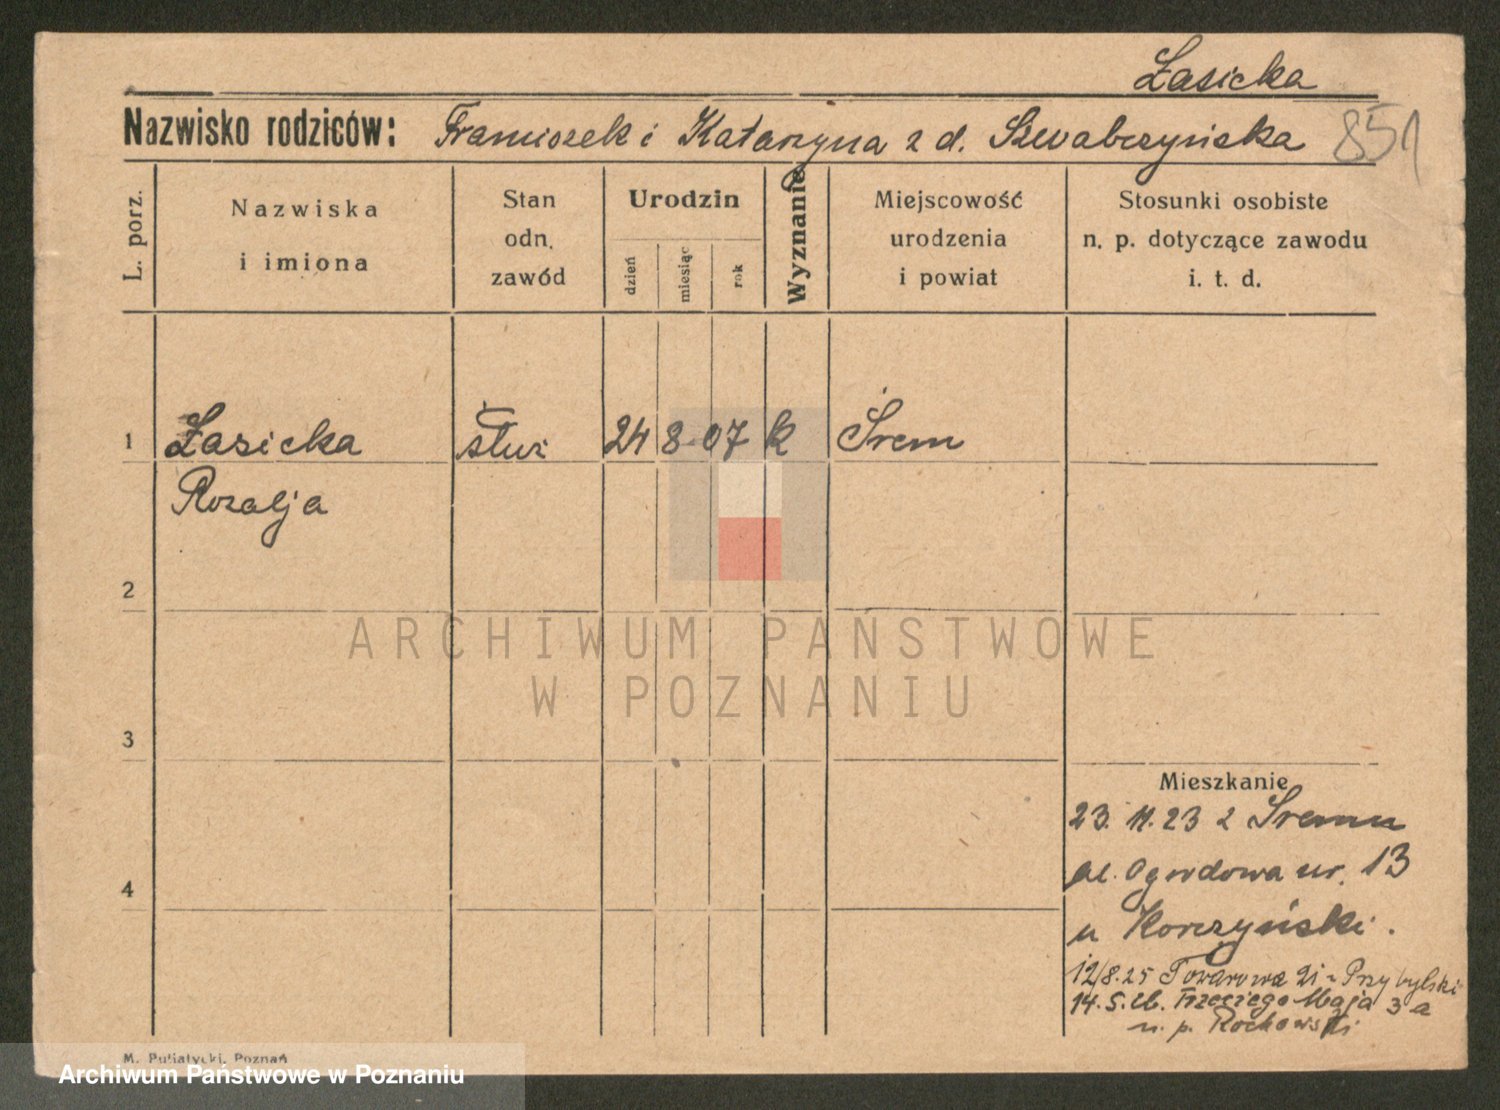 Łasicka
Nazwisko rodziców: Franciszek i Katarzyna z d. Szwabczyńska 851
L. porz.
Nazwiska
i imiona
Stan
odn.
zawód
Urodzin
dzień
miesiąc
rok
Wyznanie
Miejscowość
urodzenia
i powiat
Stosunki osobiste
n. p. dotyczące zawodu
i. t. d.
1 Łasicka służ 24 8 07 k Śrem
Rozalja
2
ARCHIWUM PAŃSTWOWE
W POZNANIU
3
Mieszkanie
23. 11. 23 z Śremu
4 al. Ogrodowa nr. 13
u Korczyński.
12/8.25 Towarowa 21 Przybylski
14.5.26. Trzeciego Maja 3 a
u. p. Rochowski
M. Putiatycki, Poznań
Archiwum Państwowe w Poznaniu